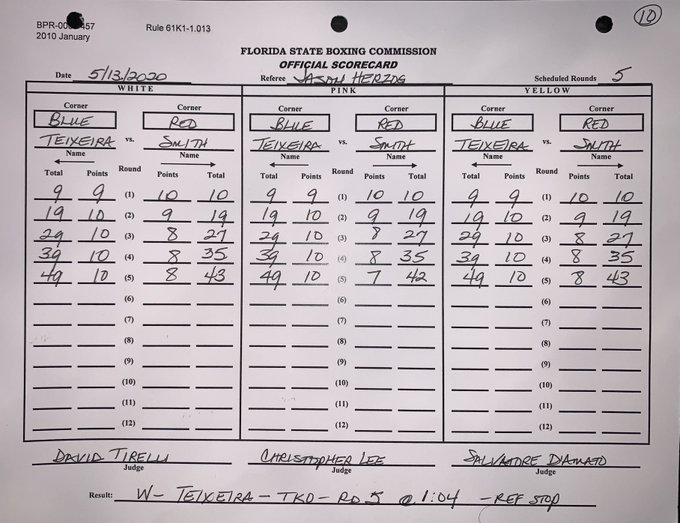 BPR-00 457 Rule 61K1-1.013
2010 January
10
FLORIDA STATE BOXING COMMISSION
OFFICIAL SCORECARD
Date 5/13/2020 Referee JASON HERZOG Scheduled Rounds 5
WHITE PINK YELLOW
Corner Corner Corner Corner Corner Corner
BLUE RED BLUE RED BLUE RED
TEIXEIRA vs. SMITH TEIXEIRA vs. SMITH TEIXEIRA vs. SMITH
Name Name Name Name Name Name
Total Points Round Points Total Total Points Round Points Total Total Points Round Points Total
9 9 (1) 10 10 9 9 (1) 10 10 9 9 (1) 10 10
19 10 (2) 9 19 19 10 (2) 9 19 19 10 (2) 9 19
29 10 (3) 8 27 29 10 (3) 8 27 29 10 (3) 8 27
39 10 (4) 8 35 39 10 (4) 8 35 39 10 (4) 8 35
49 10 (5) 8 43 49 10 (5) 7 42 49 10 (5) 8 43
(6) (6) (6)
(7) (7) (7)
(8) (8) (8)
(9) (9) (9)
(10) (10) (10)
(11) (11) (11)
(12) (12) (12)
DAVID TIRELLI CHRISTOPHER LEE SALVATORE D'AMATO
Judge Judge Judge
Result: W- TEIXEIRA - TKO - RD 5 @ 1:04 - REF STOP